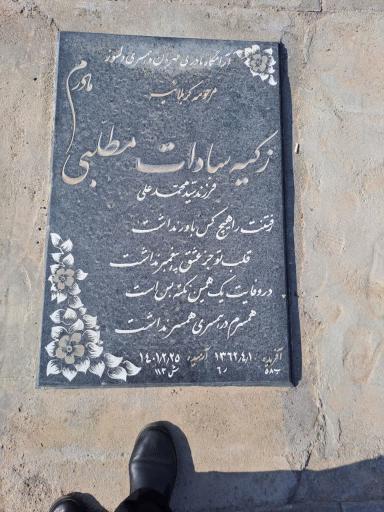 آرامگاه مادری مهربان و همسری دلسوز
مادرم
مرحومه کربلائیه
زکیه سادات مطلبی
فرزند سید محمد علی
رفتنت را هیچ کس باور نداشت
قلب تو جز عشق پیغمبر نداشت
در وفایت یک همین نکته بس است
همسرم در همسری همسر نداشت
آفریده ۱۳۶۲٫۴٫۱ آرمیده: ۱۴۰۱٫۲٫۲۵
ش ۱۱۳